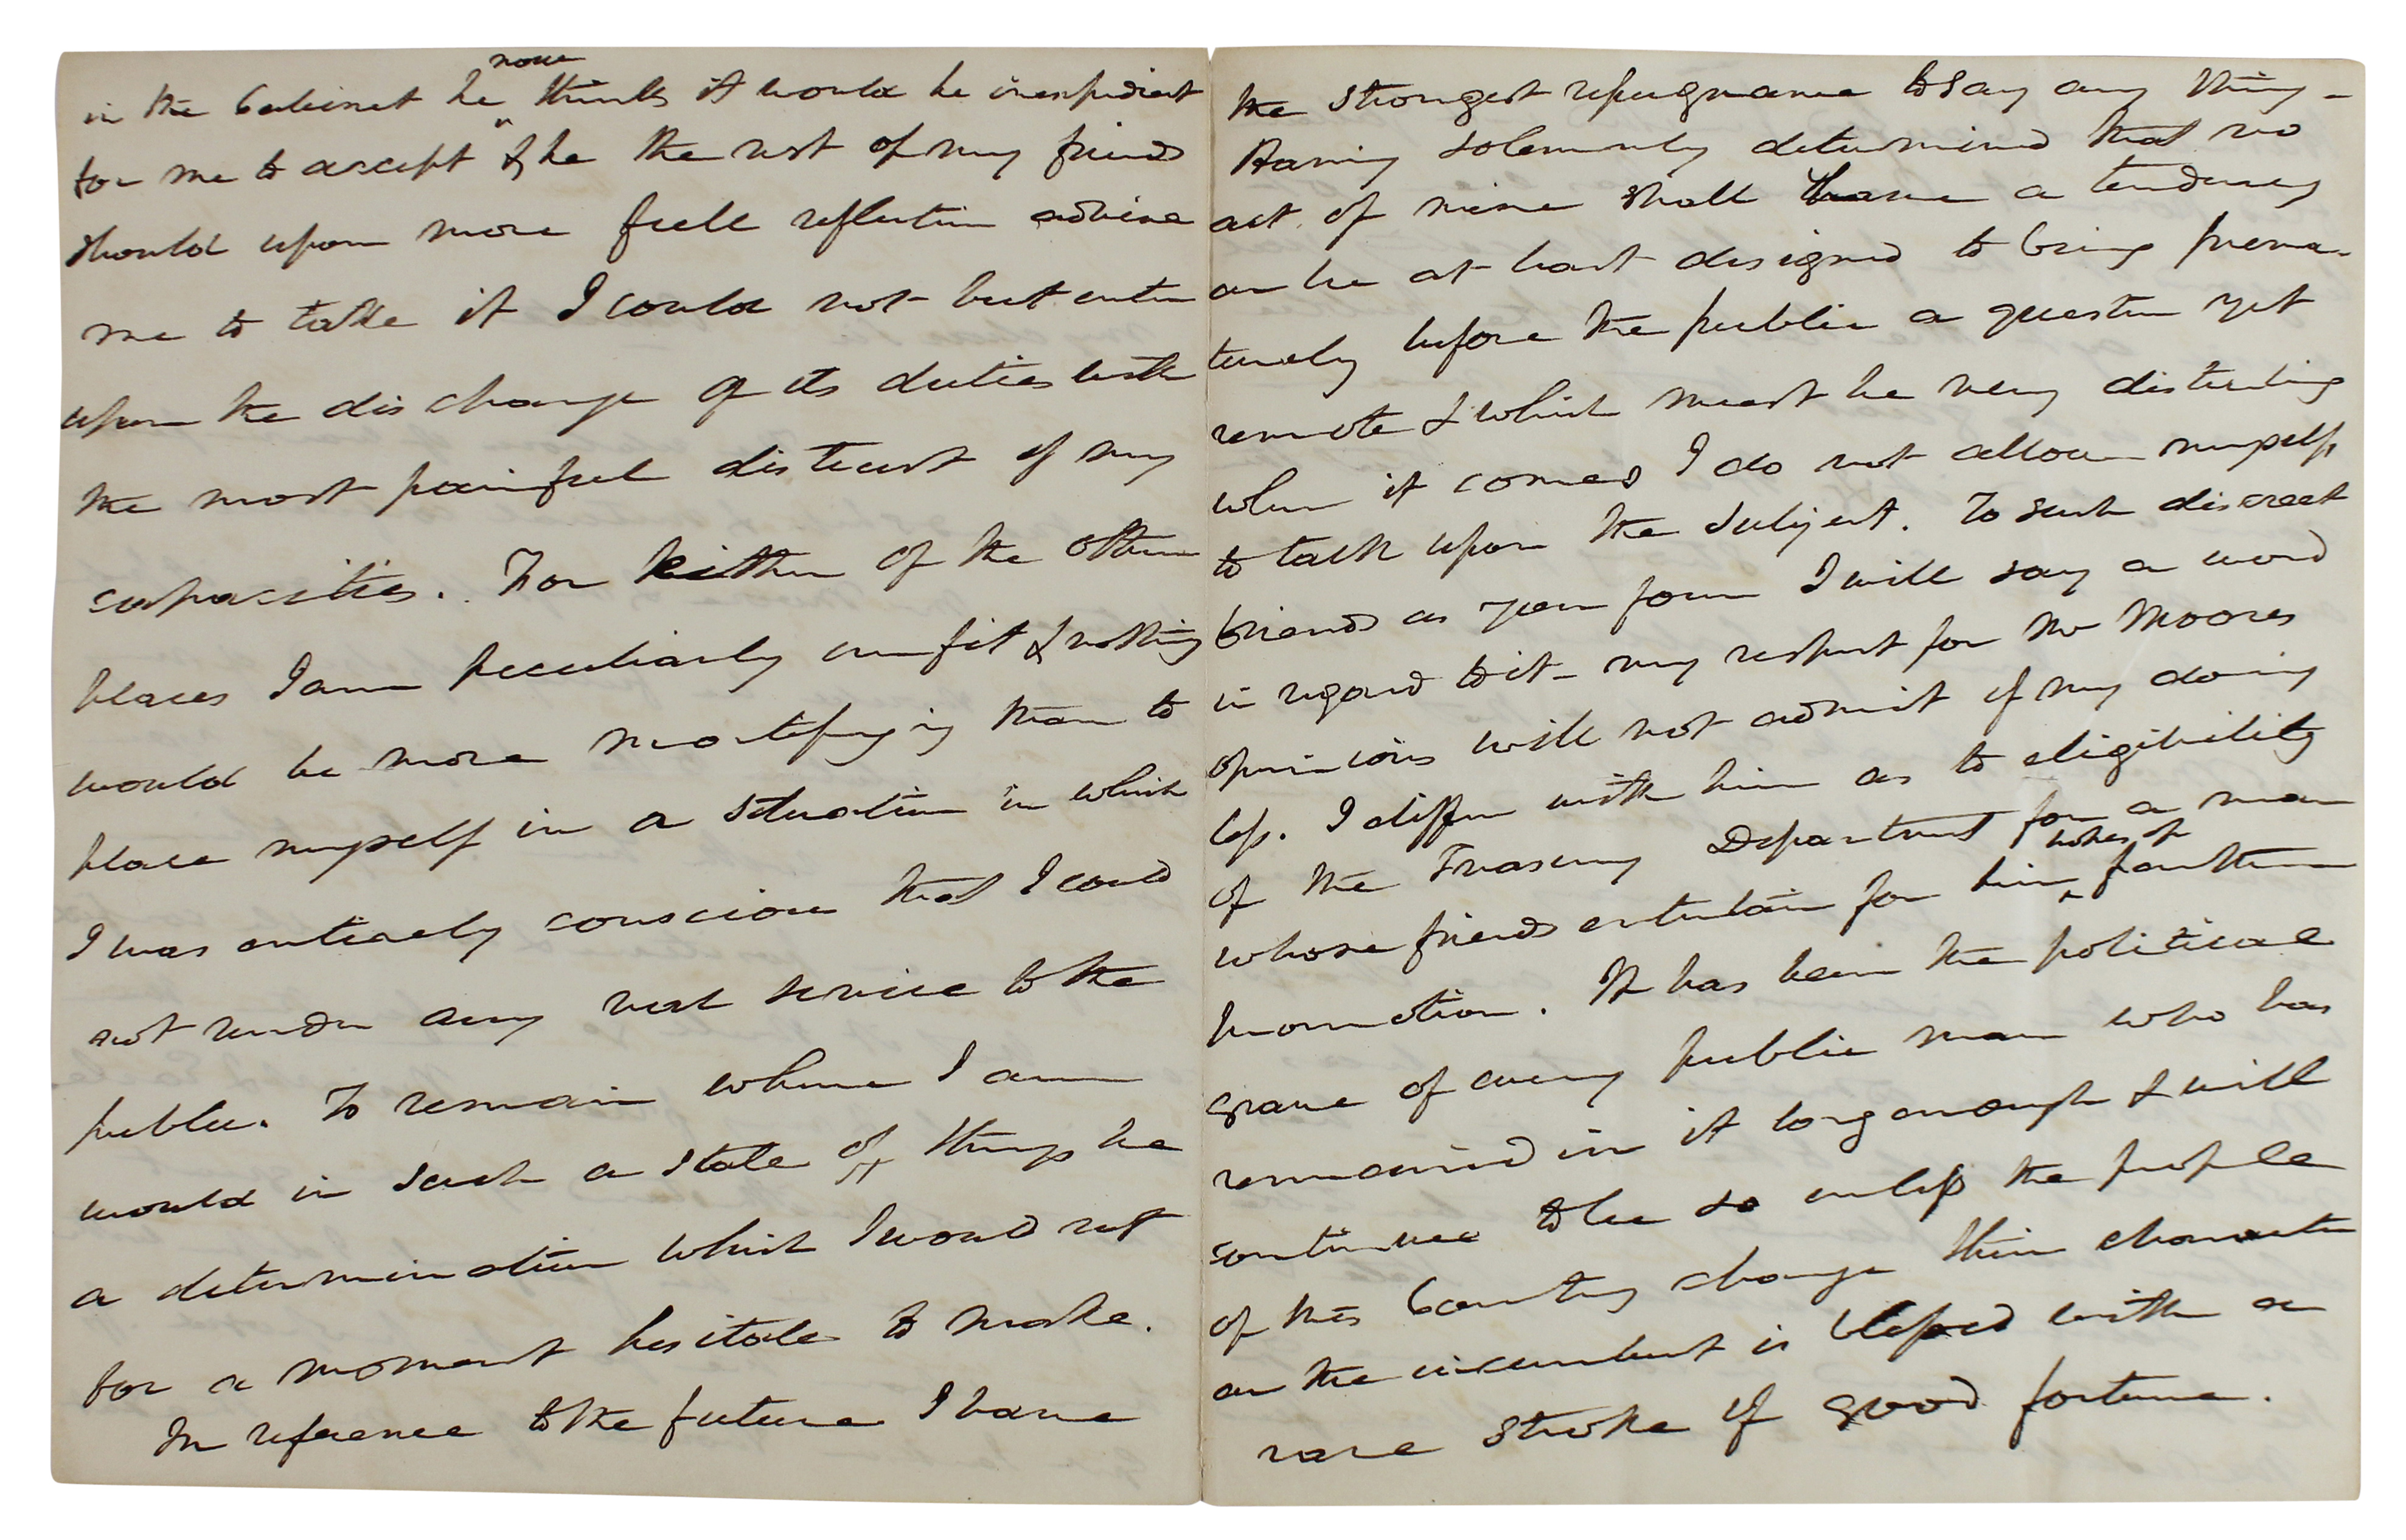 now
in the Cabinet he thinks it would be inexpedient
for me to accept & he the rest of my friends
should upon more full reflection advise
me to take it I could not but enter
upon the discharge of its duties with
the most painful distrust of my
capacities. For either of the other
places I am peculiarly unfit & nothing
would be more mortifying than to
place myself in a situation in which
I was entirely conscious that I could
not render any real service to the
public. To remain where I am
would in such a state of things be
a determination which I would not
for a moment hesitate to make.
In reference to the future I have
the strongest repugnance to say any thing –
Having solemnly determined that no
act of mine shall have a tendency
or be at least designed to bring prema-
turely before the public a question yet
remote & which must be very disturbing
when it comes I do not allow myself
to talk upon the subject. To such discreet
friends as you four I will say a word
in regard to it – my respect for Mr Moores
opinions will not admit of my doing
less. I differ with him as to eligibility
of the Treasury Department for a man
whose friends entertain for him hopes of farther
promotion. It has been the political
grave of every public man who has
remained in it long enough & will
continue to be so unless the people
of this Country change their character
or the incumbent is blessed with a
rare stroke of good fortune.